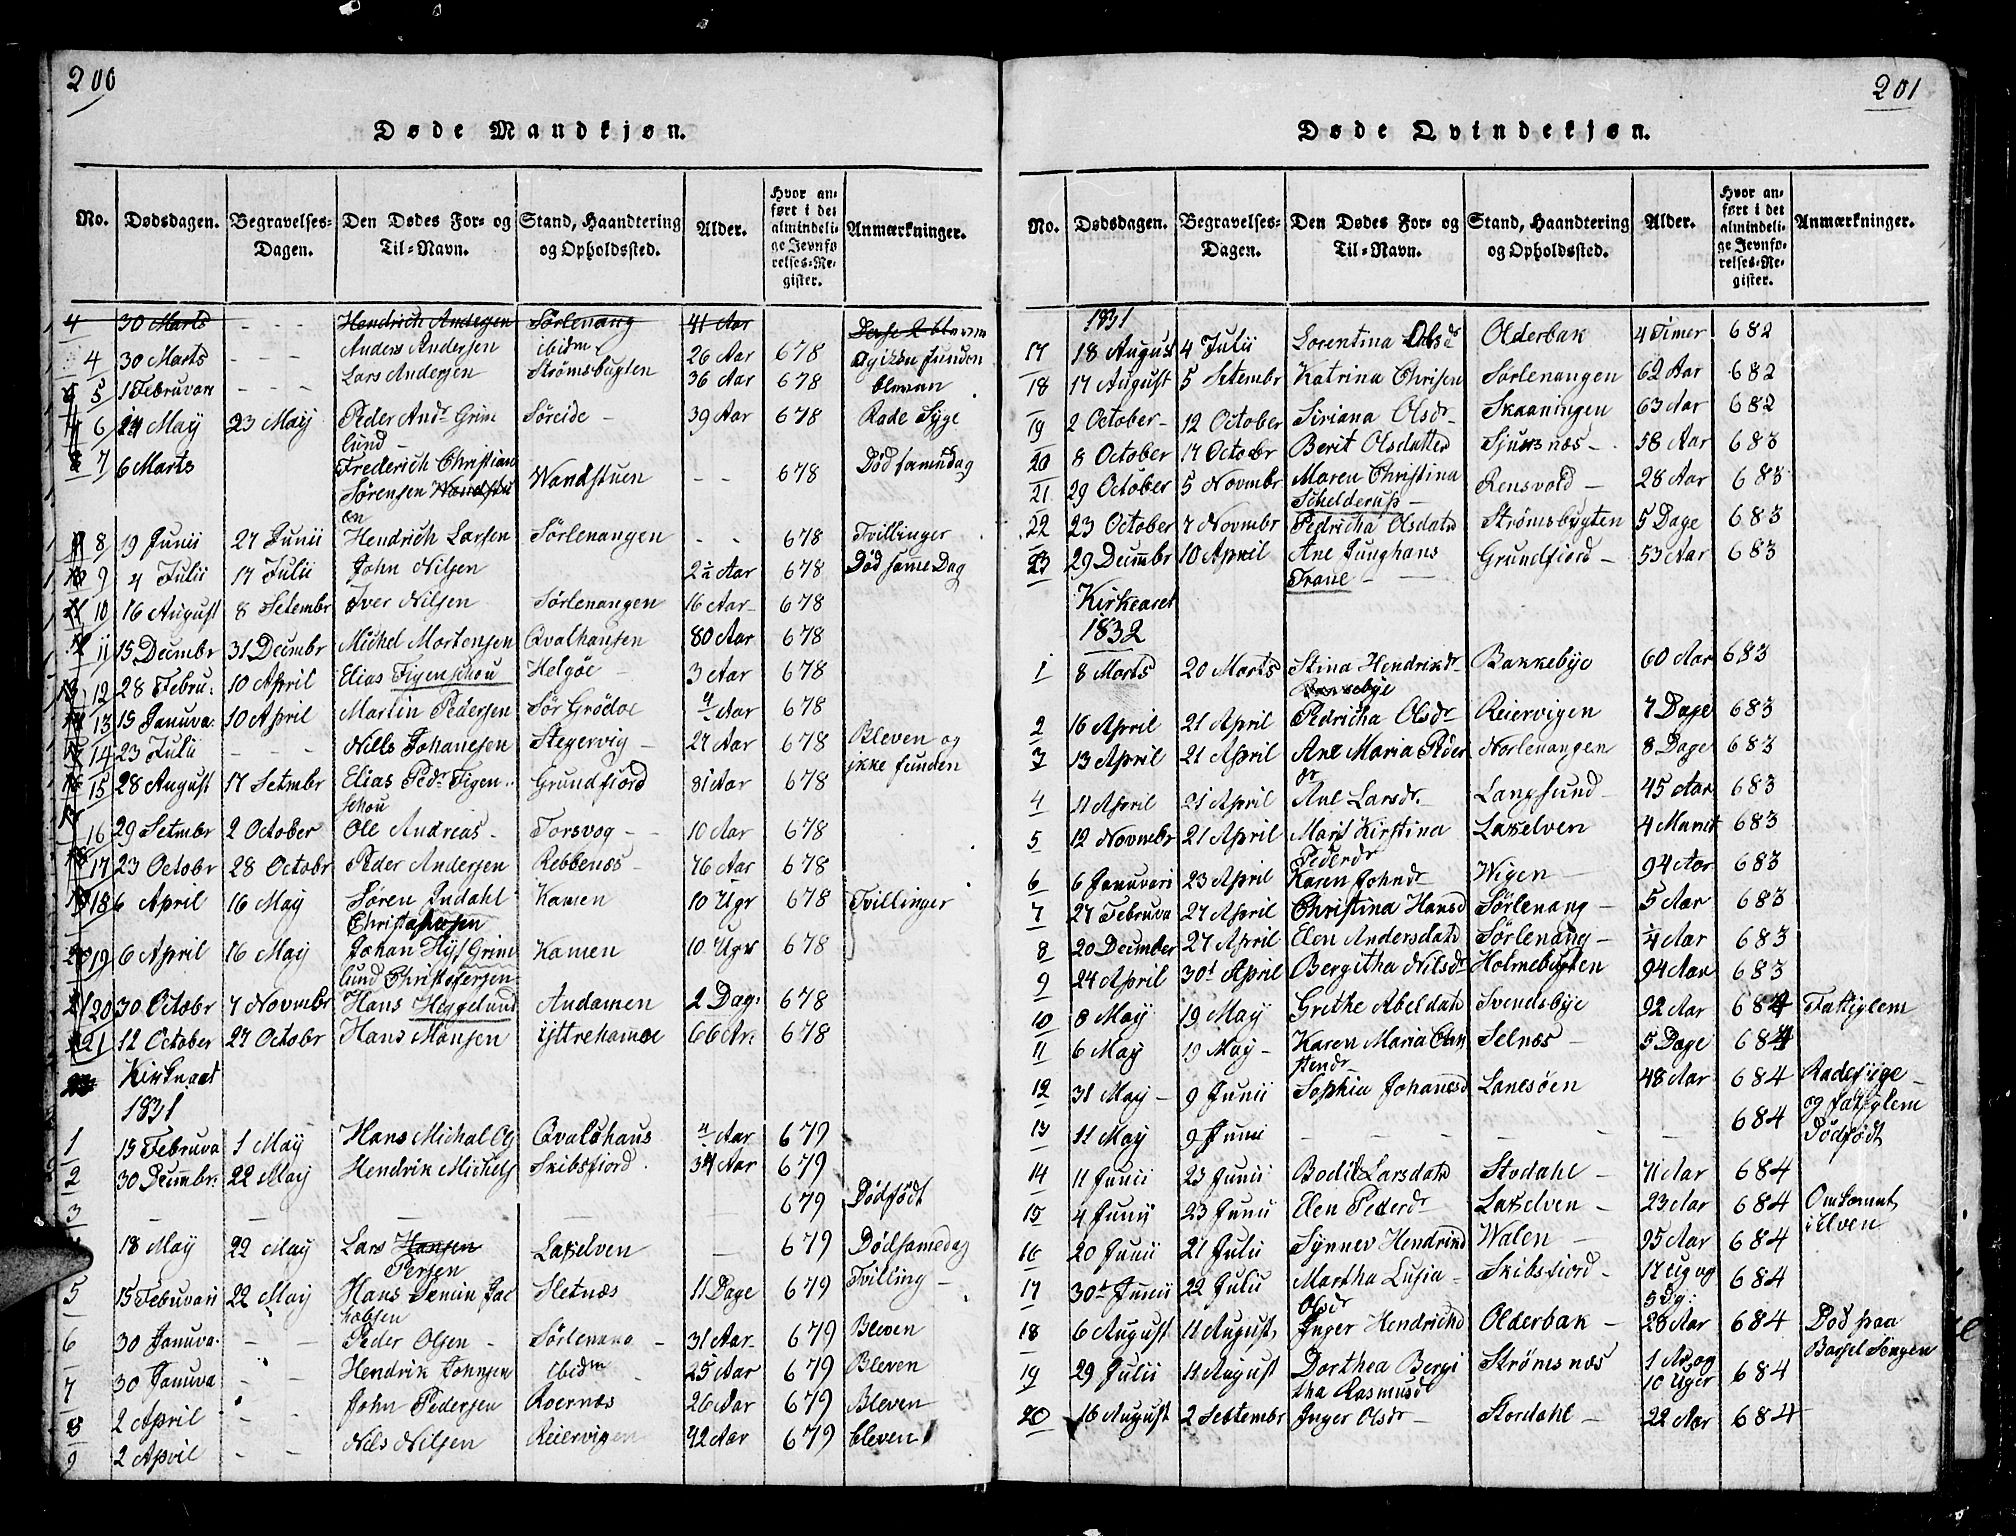 200
Døde Mandkjøn.
No. Dødsdagen. Begravelses-Dagen. Den Dødes For- og Til-Navn. Stand, Haandtering og Opholdssted. Alder. Hvor anført i det almindelige Jevnførelses-Register. Anmærkninger.
4 30 Marts - - - Hendrich Andersen Sørlenang 41 Aar
4 30 Marts - - - Anders Andersen ibidm 26 Aar 678 og ikke funden
5 1 Februari - - - Lars Andersen Strømsbugten 36 Aar 678 bleven
6 24 May 23 May Peder Andr Grim Søreide - 39 Aar 678 Rade Syge
lund -
7 6 Marts Frederich Christian Wandstuen - - 678 Død samedag
Sørensen Wandstu
en
8 19 Junii 27 Junii Hendrich Larsen Sørlenangen - - 678 Tvillinger
9 4 Julii 17 Julii John Nilsen 2½ Aar 678 Død same Dag
10 16 August 8 Setembr Iver Nilsen Sørlenangen 16 Aar 678
11 15 Decembr 31 Decembr Michel Mortensen Qvalhausen 80 Aar 678
12 28 Febru: 10 April Elias Figenschou Helgøe - 3 Aar 678
13 15 Januva: 10 April Martin Pedersen Sør Grødøe Aar 678
14 23 Julii - - - Nills Johanesen Stegervig - 27 Aar 678 Bleven og
ikke funden
15 28 August 17 Setmbr Elias Pedr Figen- Grundfiord 81 Aar 678
schou
16 29 Setmbr 2 October Ole Andreas - Torsvog - - 10 Aar 678
17 23 Octobr 28 Octobr Peder Andersen Rebbenæs - 76 Aar 678
18 6 April 16 May Søren Indahl Kamen 10 Ugr 678 Tvillinger
Christophersen
19 6 April 16 May Johan Hysf Grim Kamen 10 Ugr 678
lund Christofersen
20 30 Octobr 7 Novmbr Hans Heggelund Andamen 2 Dag: 678
21 12 October 27 Octobr Hans Mansen Yttrehamne 66 Ar: 678
Kirkaaret
1831
1 15 Februva 1 May Hans Michal Ol Qvalshaus Aar 679
2 30 Decembr: 22 May Hendrik Michels Skibsfiord. 34 Aar 679
3 - - - - 679 Dødfødt
18 May 22 May Lars Hansen Lakselven - 679 Dødsamedag
Persen
5 15 Februvarii 22 May Hans Demin Jac Hetnæs 11 Dage 679 Tvilling -
kobsen
6 30 Januva. - - Peder Olsen - Sørlenang - 31 Aar 679 Bleven
7 30 Januva - - Hendrik Johnsen Ibidm 25 Aar 679 Bleven
8 2 April - - John Pedersen Roernæs 26 Aar 679 Bleven
9 2 April - - Nils Nilsen Reiervigen 42 Aar 679 bleven
201
Døde Qvindekjøn.
No. Dødsdagen. Begravelses-Dagen. Den Dødes For- og Til-Navn. Stand, Haandtering og Opholdssted. Alder. Hvor anført i det almindelige Jevnførelses-Register. Anmærkninger.
1831
17 18 August 4 Julii Lorentina Olsd Olderbak 4 Timer 682
18 17 August 5 Setembr Katrina Chrisen Sørlenangen 62 Aar 682
19 2 October - 12 October Siriana Olsdr Skaaningen 63 Aar 682
20 8 October 17 October Berit Olsdatter Sjursnæs - 58 Aar 683
21 29 October 5 Novmbr Maren Christina Rensvold - 28 Aar 683
Schelderup -
22 23 October 7 Novmbr Pedricha Olsdatr Strømsbygten 5 Dage 683
23 29 Decmbr 10 April Ane Junghans Grundfiord - 53 Aar 683
Trane - -
Kirkeaaret
1832
1 8 Marts 20 Marts Stina Hendriksdr Bakkebye 60 Aar 683
2 16 April 21 April Pedricha Olsdr Reiervigen 7 Dage 683
3 13 April 21 April Ane Maria Peder Nørlenangen 8 Dage 683
dr
4 11 April 21 April Ane Larsdr. Langsund 45 Aar 683
5 12 Novmbr 21 April Marit Kirstina Lakselven 4 Manet 683
Pederdr
6 6 Januvari 23 April Karen Johnsdr Wigen - 94 Aar 683
7 27 Februva 27 April Christina Hansd Sørlenang - 5 Aar 683
8 20 December 27 April Elen Andersdatr Sørlenang - ¼ Aar 683
9 24 April 30t April Bergitha Nilsdr Holmebugten 94 Aar 683
10 8 May 19 May Grethe Abeldatr Svendsbye 92 Aar 684 Fattiglem
11 6 May 19 May - Karen Maria Chri Selnæs - 5 Dage 684
stendr
12 31 May - 9 Junii Sophia Johannesd Lanesøen 48 Aar 684 Radesyge -
og fattiglem
13 11 May 9 Junii - - - - - 684 Dødfødt
14 11 Junii 23 Junii Bodil Larsdatr Stodahl - 71 Aar 684
15 4 Junii 23 Junii Elen Pederdr Lakselven - 23 Aar 684 Omkomet
i elven
16 20 Junii 21 Julii Synnev Hendrind Walen - 95 Aar 684
17 30t Junii 22 Julii Martha Lusia - Skibsfiord - 17 Ug og 684
Olsdr 5 Dg:
18 6 August 11 August, Inger Hendrichd Olderbak - 28 Aar 684 Død paa
Barsel Sengen
19 29 Julii 11 August Dorthea Bergi Strømsnæs 1 Ar og 684
tha Rasmusd 10 Uger
20 16 August 2 Settembr Inger Olsdr - Stordahl - 22 Aar 684